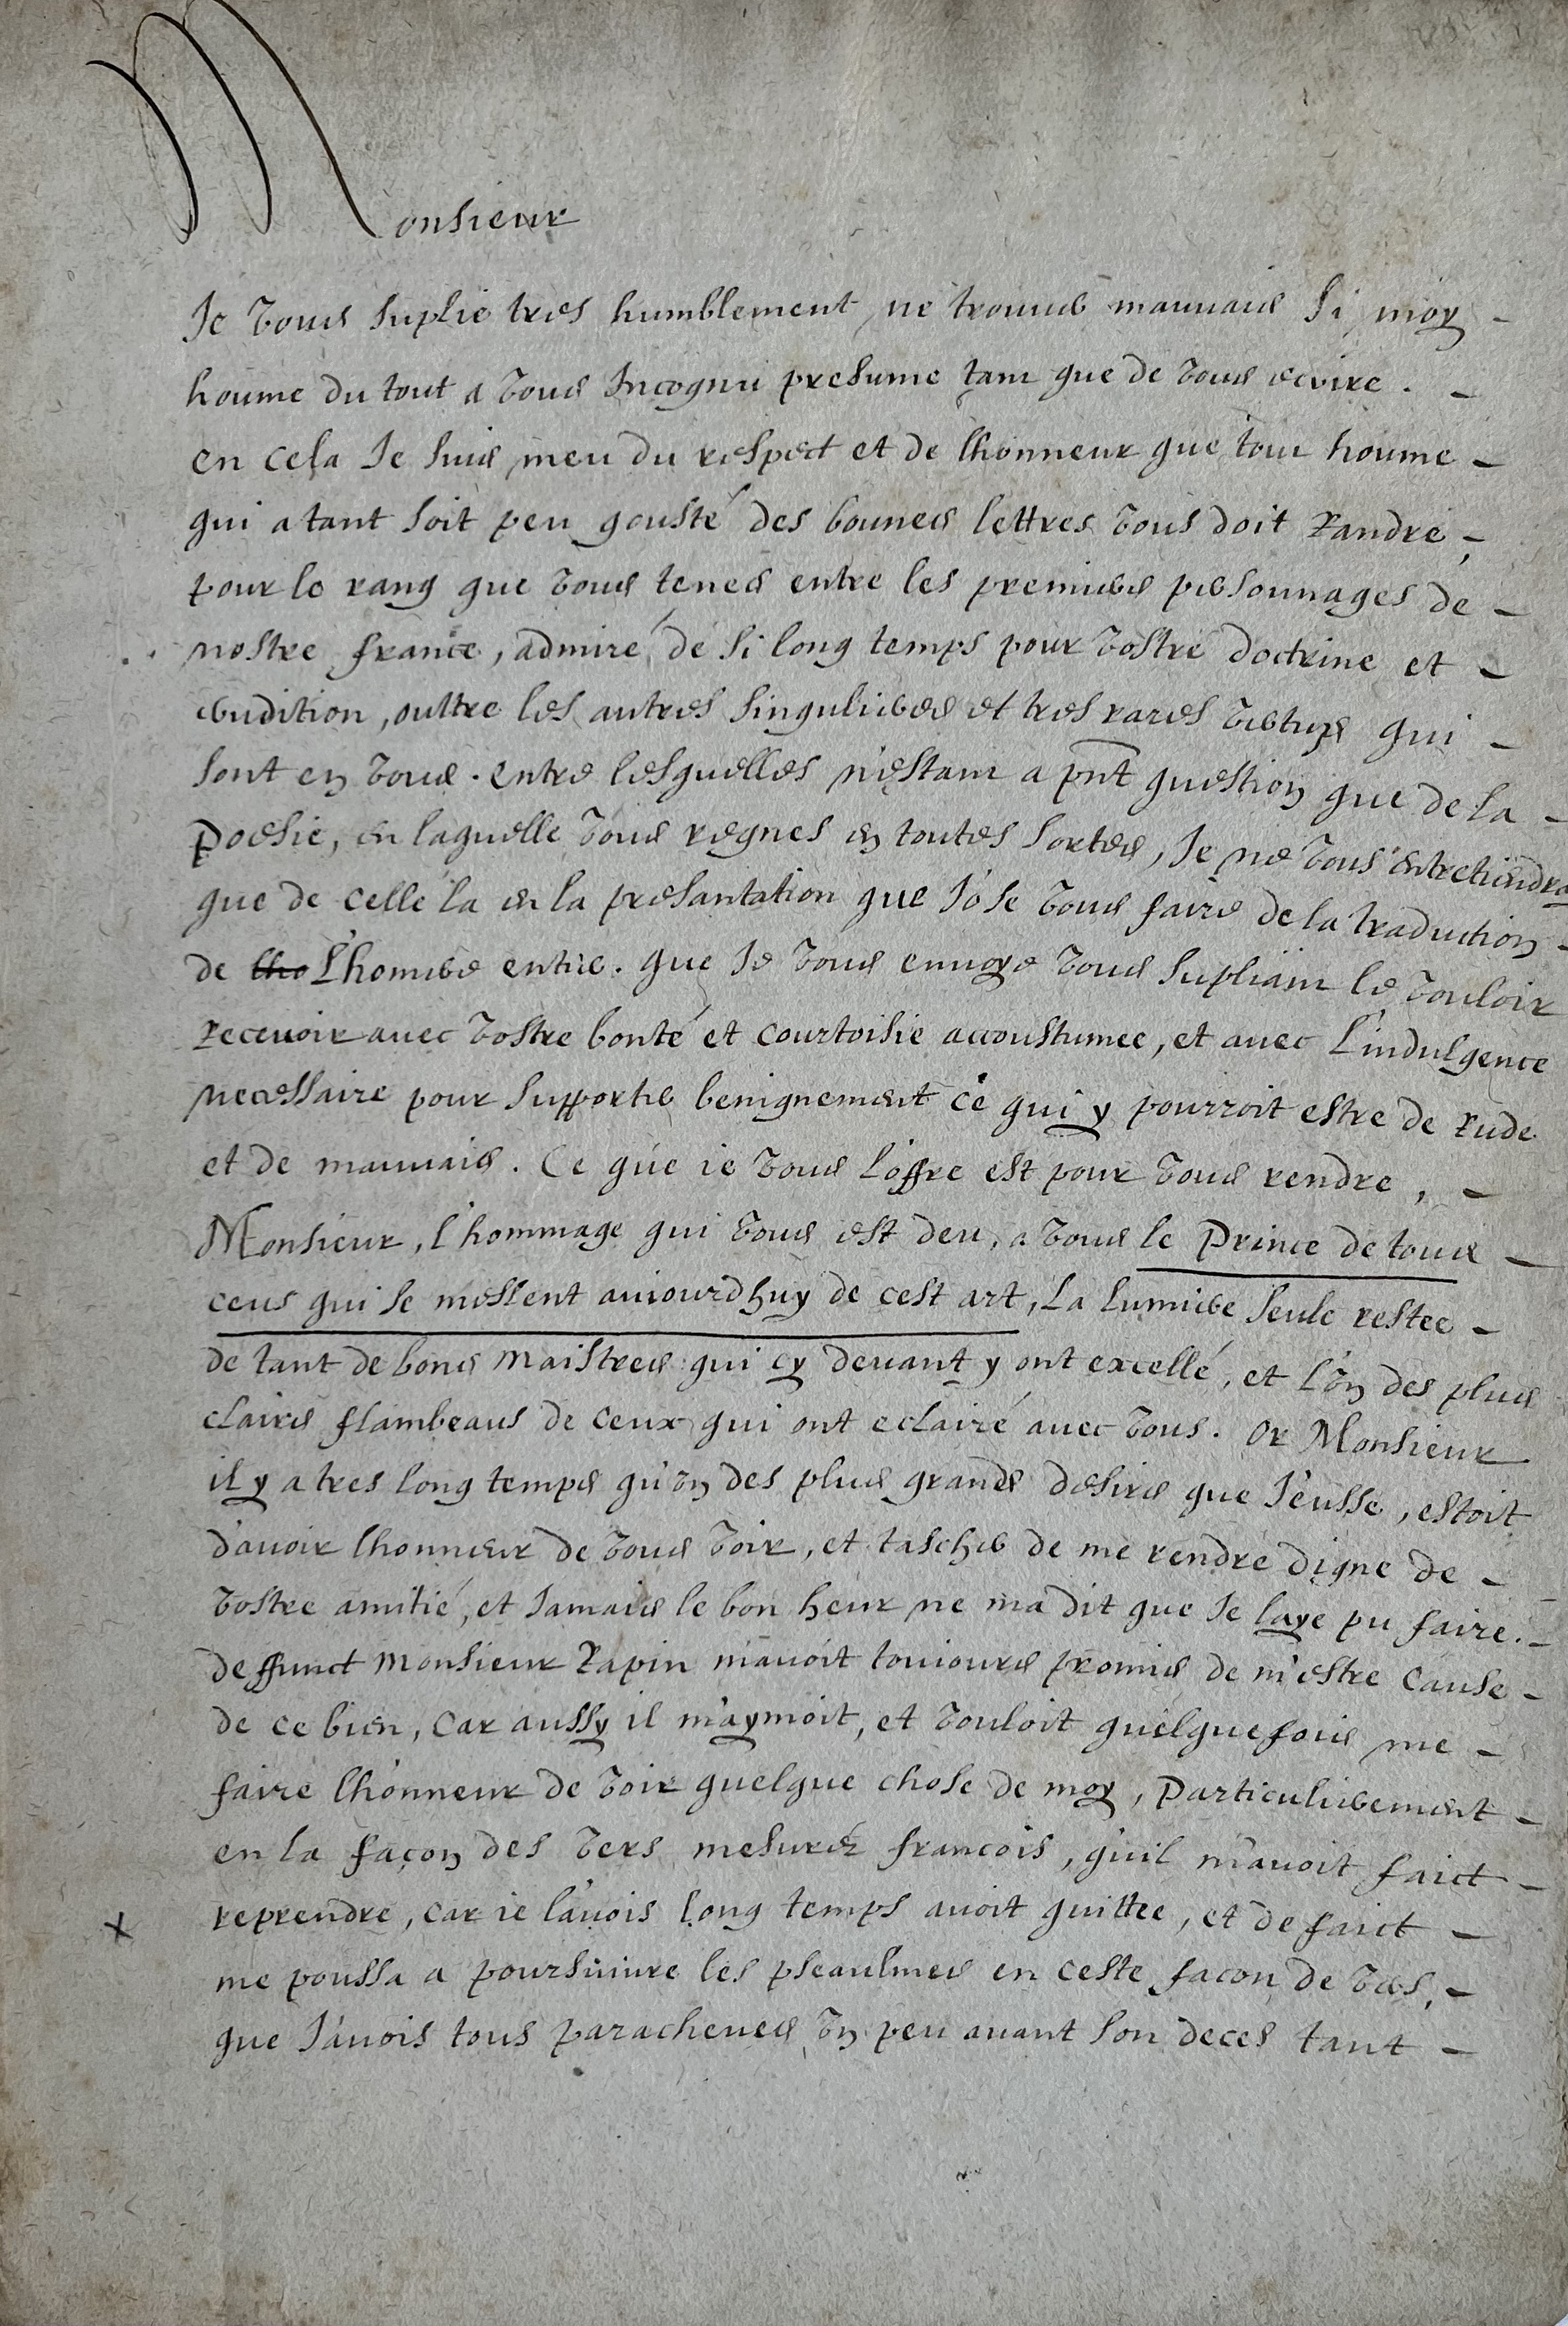 Monsieur
Je vous suplie tres humblement ne trouver mauvais si moy -
houme du tout a vous Incognu presume tant que de vous ecrire. -
en cela Je suis meu du respect et de lhonneur que tout houme -
qui a tant soit peu gousté des bounes lettres vous doit randre, -
pour le rang que vous tenes entre les premiers persounages de -
nostre france, admiré de si long temps pour vostre doctrine et -
erudition, oultre les autres singulieres et tres rares vertus qui -
sont en vous. entre lesquelles n'estant a pnt question que de la -
Poesie, en laquelle vous regnes en toutes sortes, Je ne vous entretiendra
que de celle la en la presantation que J'ose vous faire de la traduction -
de lho L'homere entier. que Je vous envoye vous supliant le vouloir
recevoir avec vostre bonté et courtoisie accoustumee, et avec L'indulgence
necessaire pour supporter benignement ce qui y pourroit estre de rude
et de mauvais. Ce que ie vous l'offre est pour vous rendre, -
Monsieur, l'hommage qui vous est deu, a vous le Prince de tous -
ceus qui se meslent auiourdhuy de cest art, La Lumiere seule restee -
de tant de bons maistres qui cy devant y ont excellé, et L'un des plus
clairs flambeaus de ceux qui ont eclairé avec vous. Or Monsieur
il y a tres long temps qu'un des plus grands desirs que J'eusse, estoit
d'avoir lhonneur de vous voir, et tascher de me rendre digne de -
vostre amitié, et Jamais le bon heur ne ma dit que Je laye pu faire. -
deffunct Monsieur Rapin m'avoit touiours promis de m'estre cause -
de ce bien, car aussy il m'aymoit, et vouloit quelquefois me -
faire lhonneur de voir quelque chose de moy, particulierement -
en la façon des vers mesurez francois, qu'il m'avoit faict -
reprendre, car ie l'avois long temps avoit quittee, et de faict -
x
me poussa a poursuivre les pseaulmes en ceste facon de vers, -
que J'avois tous paracheves un peu avant son deces tant -